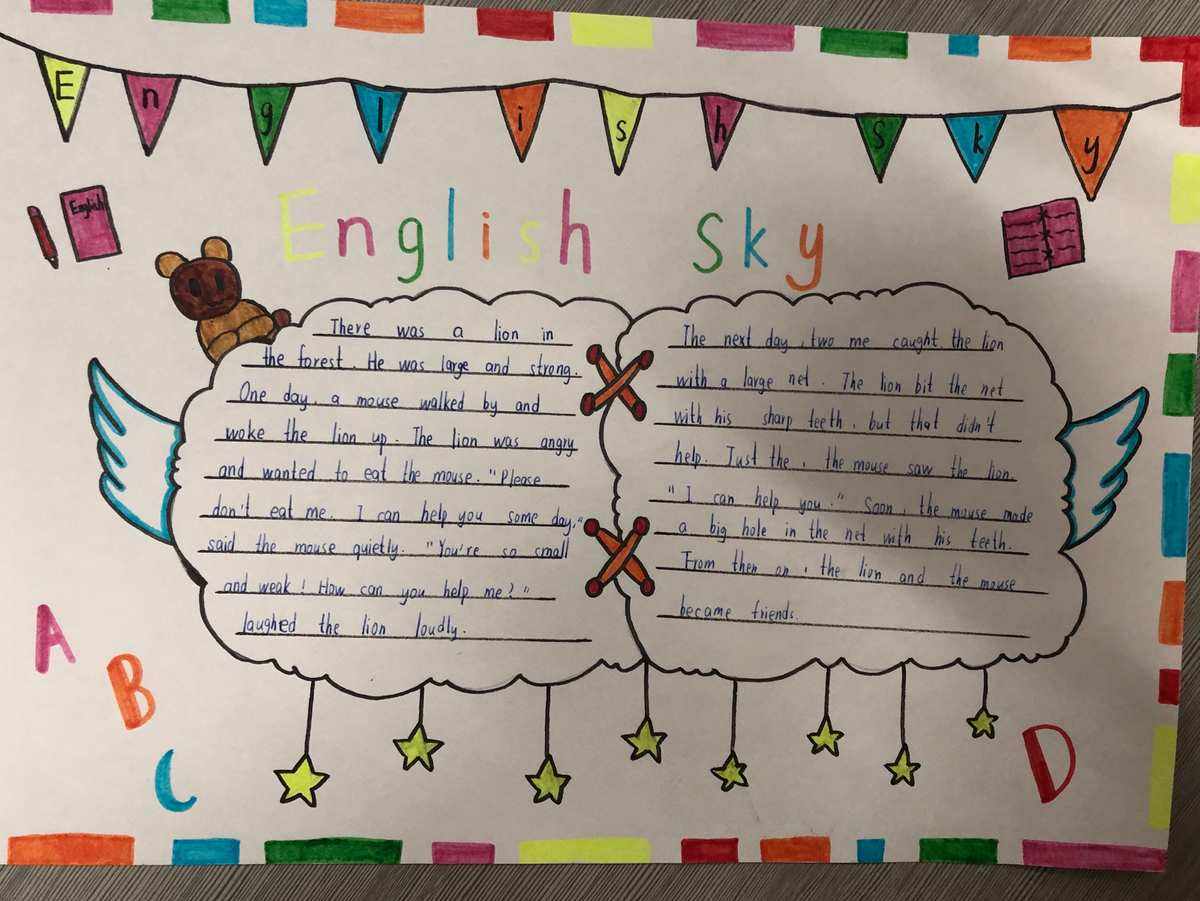 English Sky
English
English Sky
There was a lion in
the forest. He was large and strong.
One day, a mouse walked by and
woke the lion up. The lion was angry
and wanted to eat the mouse. "Please
don't eat me. I can help you some day,"
said the mouse quietly. "You're so small
and weak! How can you help me?"
laughed the lion loudly.
The next day, two me caught the lion
with a large net. The lion bit the net
with his sharp teeth, but that didn't
help. Just the, the mouse saw the lion.
"I can help you." Soon, the mouse made
a big hole in the net with his teeth.
From then on, the lion and the mouse
became friends.
A
B
C
D